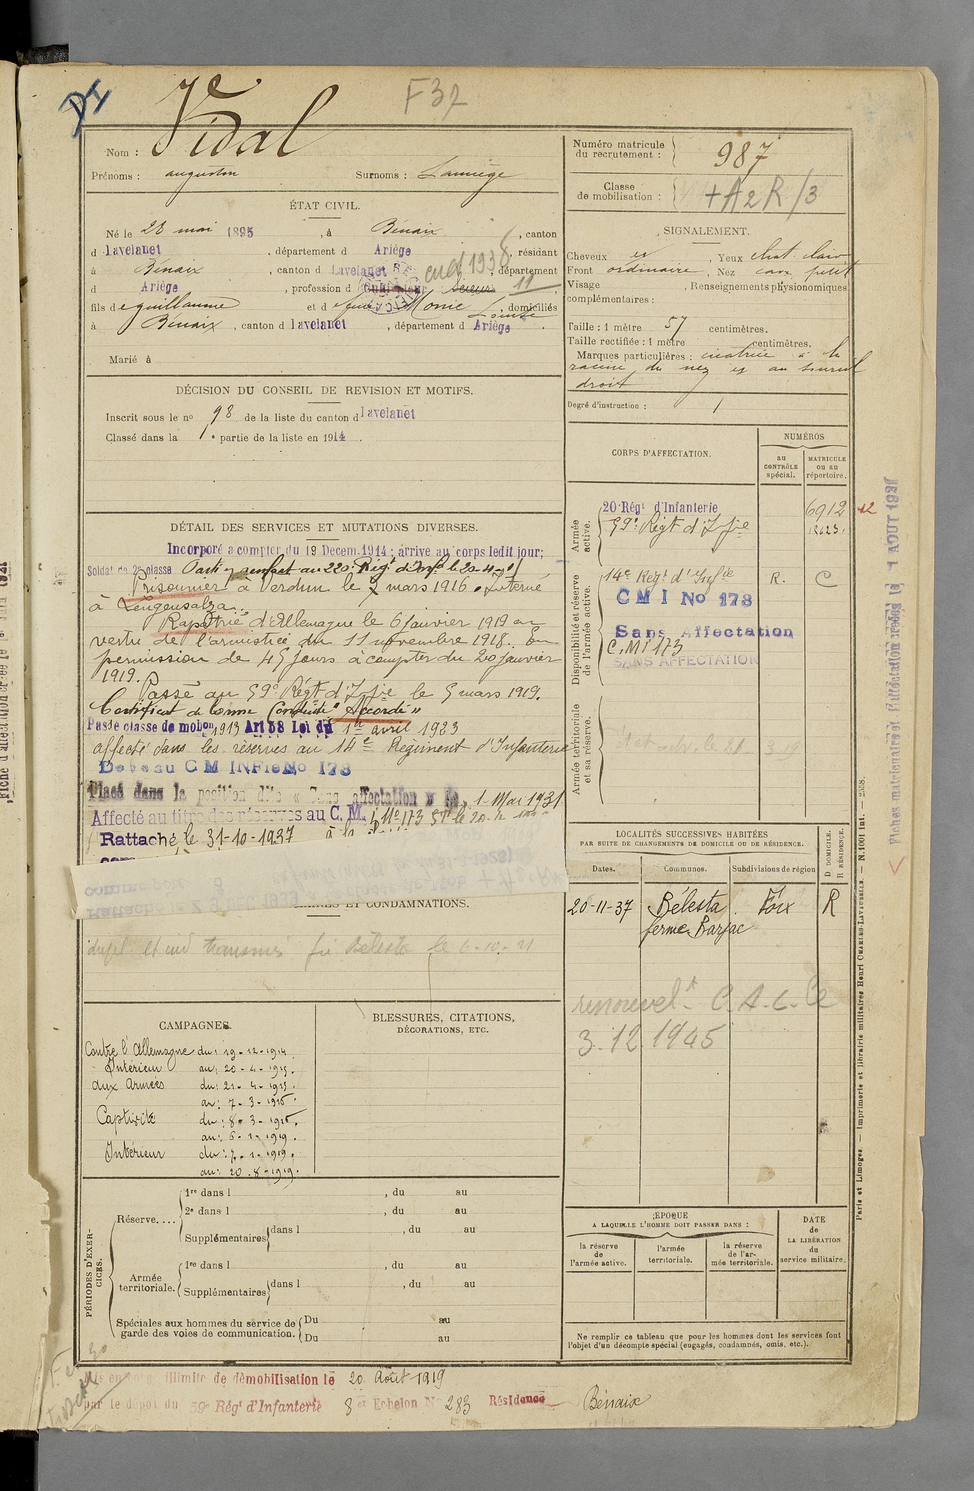 DI
F32
Nom : Vidal
Prénoms : augustin Surnoms : Lamiège
ÉTAT CIVIL.
Né le 23 mai 1895, à Bénaix, canton
d Lavelanet, département d Ariège, résidant
à Bénaix, canton d Lavelanet, département
d Ariège, profession d Cultivateur
fils de guillaume et de Monié Louise, domiciliés
à Bénaix, canton d Lavelanet, département d Ariège.
Marié à
DÉCISION DU CONSEIL DE REVISION ET MOTIFS.
Inscrit sous le no 98 de la liste du canton d Lavelanet
Classé dans la 1e partie de la liste en 1914.
DÉTAIL DES SERVICES ET MUTATIONS DIVERSES.
Incorporé a compter du 19 Decem. 1914; arrive au corps ledit jour;
Soldat de 2e classe Parti en renfort au 220e Régt d'Infie le 20-4-15
Prisonnier à Verdun le 7 mars 1916. Interné
à Lengensalza.
Rapatrié d'Allemagne le 6 janvier 1919 en
vertu de l'armistice du 11 novembre 1918. En
permission de 45 jours à compter du 20 janvier
1919.
Passé au 59e Régt d'Infie le 5 mars 1919.
Certificat de bonne Conduite "Accordé"
Passé classe de mobon 1913 Art 58 Loi du 1er avril 1923
affecté dans les réserves au 14e Régiment d'Infanterie
Devenu C M INFie No 173
Placé dans la position dite « Sans affectation » le 1 Mai 1931
Affecté au titre des réserves au C. M. I No 173
Rattaché le 31-10-1937 à la
ET CONDAMNATIONS.
transmis Bélesta le 6-10-21
CAMPAGNES.
Contre l'Allemagne du: 19-12-1914
Intérieur au: 20-4-1915.
aux Armées du: 21-4-1915.
au: 7-3-1916.
Captivité du: 8-3-1916.
au: 6-1-1919.
Intérieur du: 7-1-1919.
au: 20-8-1919.
BLESSURES, CITATIONS,
DÉCORATIONS, ETC.
PÉRIODES D'EXERCICES.
Réserve....
1re dans l , du au
2e dans l , du au
Supplémentaires dans l , du au
Armée territoriale.
1re dans l , du au
Supplémentaires dans l , du au
Spéciales aux hommes du service de
garde des voies de communication.
Du au
Du au
illimité de démobilisation le 20 Août 1919
par le dépôt du 59e Régt d'Infanterie 8e Echelon No 283 Résidence Bénaix
Numéro matricule
du recrutement : 987
Classe
de mobilisation : +A2R/3
SIGNALEMENT.
Cheveux , Yeux chat. clair
Front ordinaire, Nez cave, petit
Visage , Renseignements physionomiques
complémentaires :
Taille : 1 mètre 57 centimètres.
Taille rectifiée : 1 mètre centimètres.
Marques particulières : cicatrice à la
racine du nez et au sourcil
droit
Degré d'instruction : 1
CORPS D'AFFECTATION.
NUMÉROS
au
CONTRÔLE
spécial.
MATRICULE
ou au
répertoire.
Armée
active.
20e Régt d'Infanterie 6912
59e Régt d'Infie
Disponibilité et réserve
de l'armée active.
14e Régt d'Infie R. C
C M I No 173
Sans Affectation
C.M.I 173
SANS AFFECTATION
Armée territoriale
et sa réserve.
LOCALITÉS SUCCESSIVES HABITÉES
PAR SUITE DE CHANGEMENTS DE DOMICILE OU DE RÉSIDENCE.
Dates. Communes. Subdivisions de région
D. DOMICILE.
R. RÉSIDENCE.
20-11-37 Bélesta Foix R
ferme Barjac
renouvelt C.A.C. le
3.12.1945
ÉPOQUE
A LAQUELLE L'HOMME DOIT PASSER DANS :
la réserve
de
l'armée active.
l'armée
territoriale.
la réserve
de l'ar-
mée territoriale.
DATE
de
LA LIBÉRATION
du
service militaire.
Ne remplir ce tableau que pour les hommes dont les services font
l'objet d'un décompte spécial (engagés, condamnés, omis, etc.).
Paris et Limoges. — Imprimerie et librairie militaires Henri CHARLES-LAVAUZELLE. — N. 1001 int. — 2558.